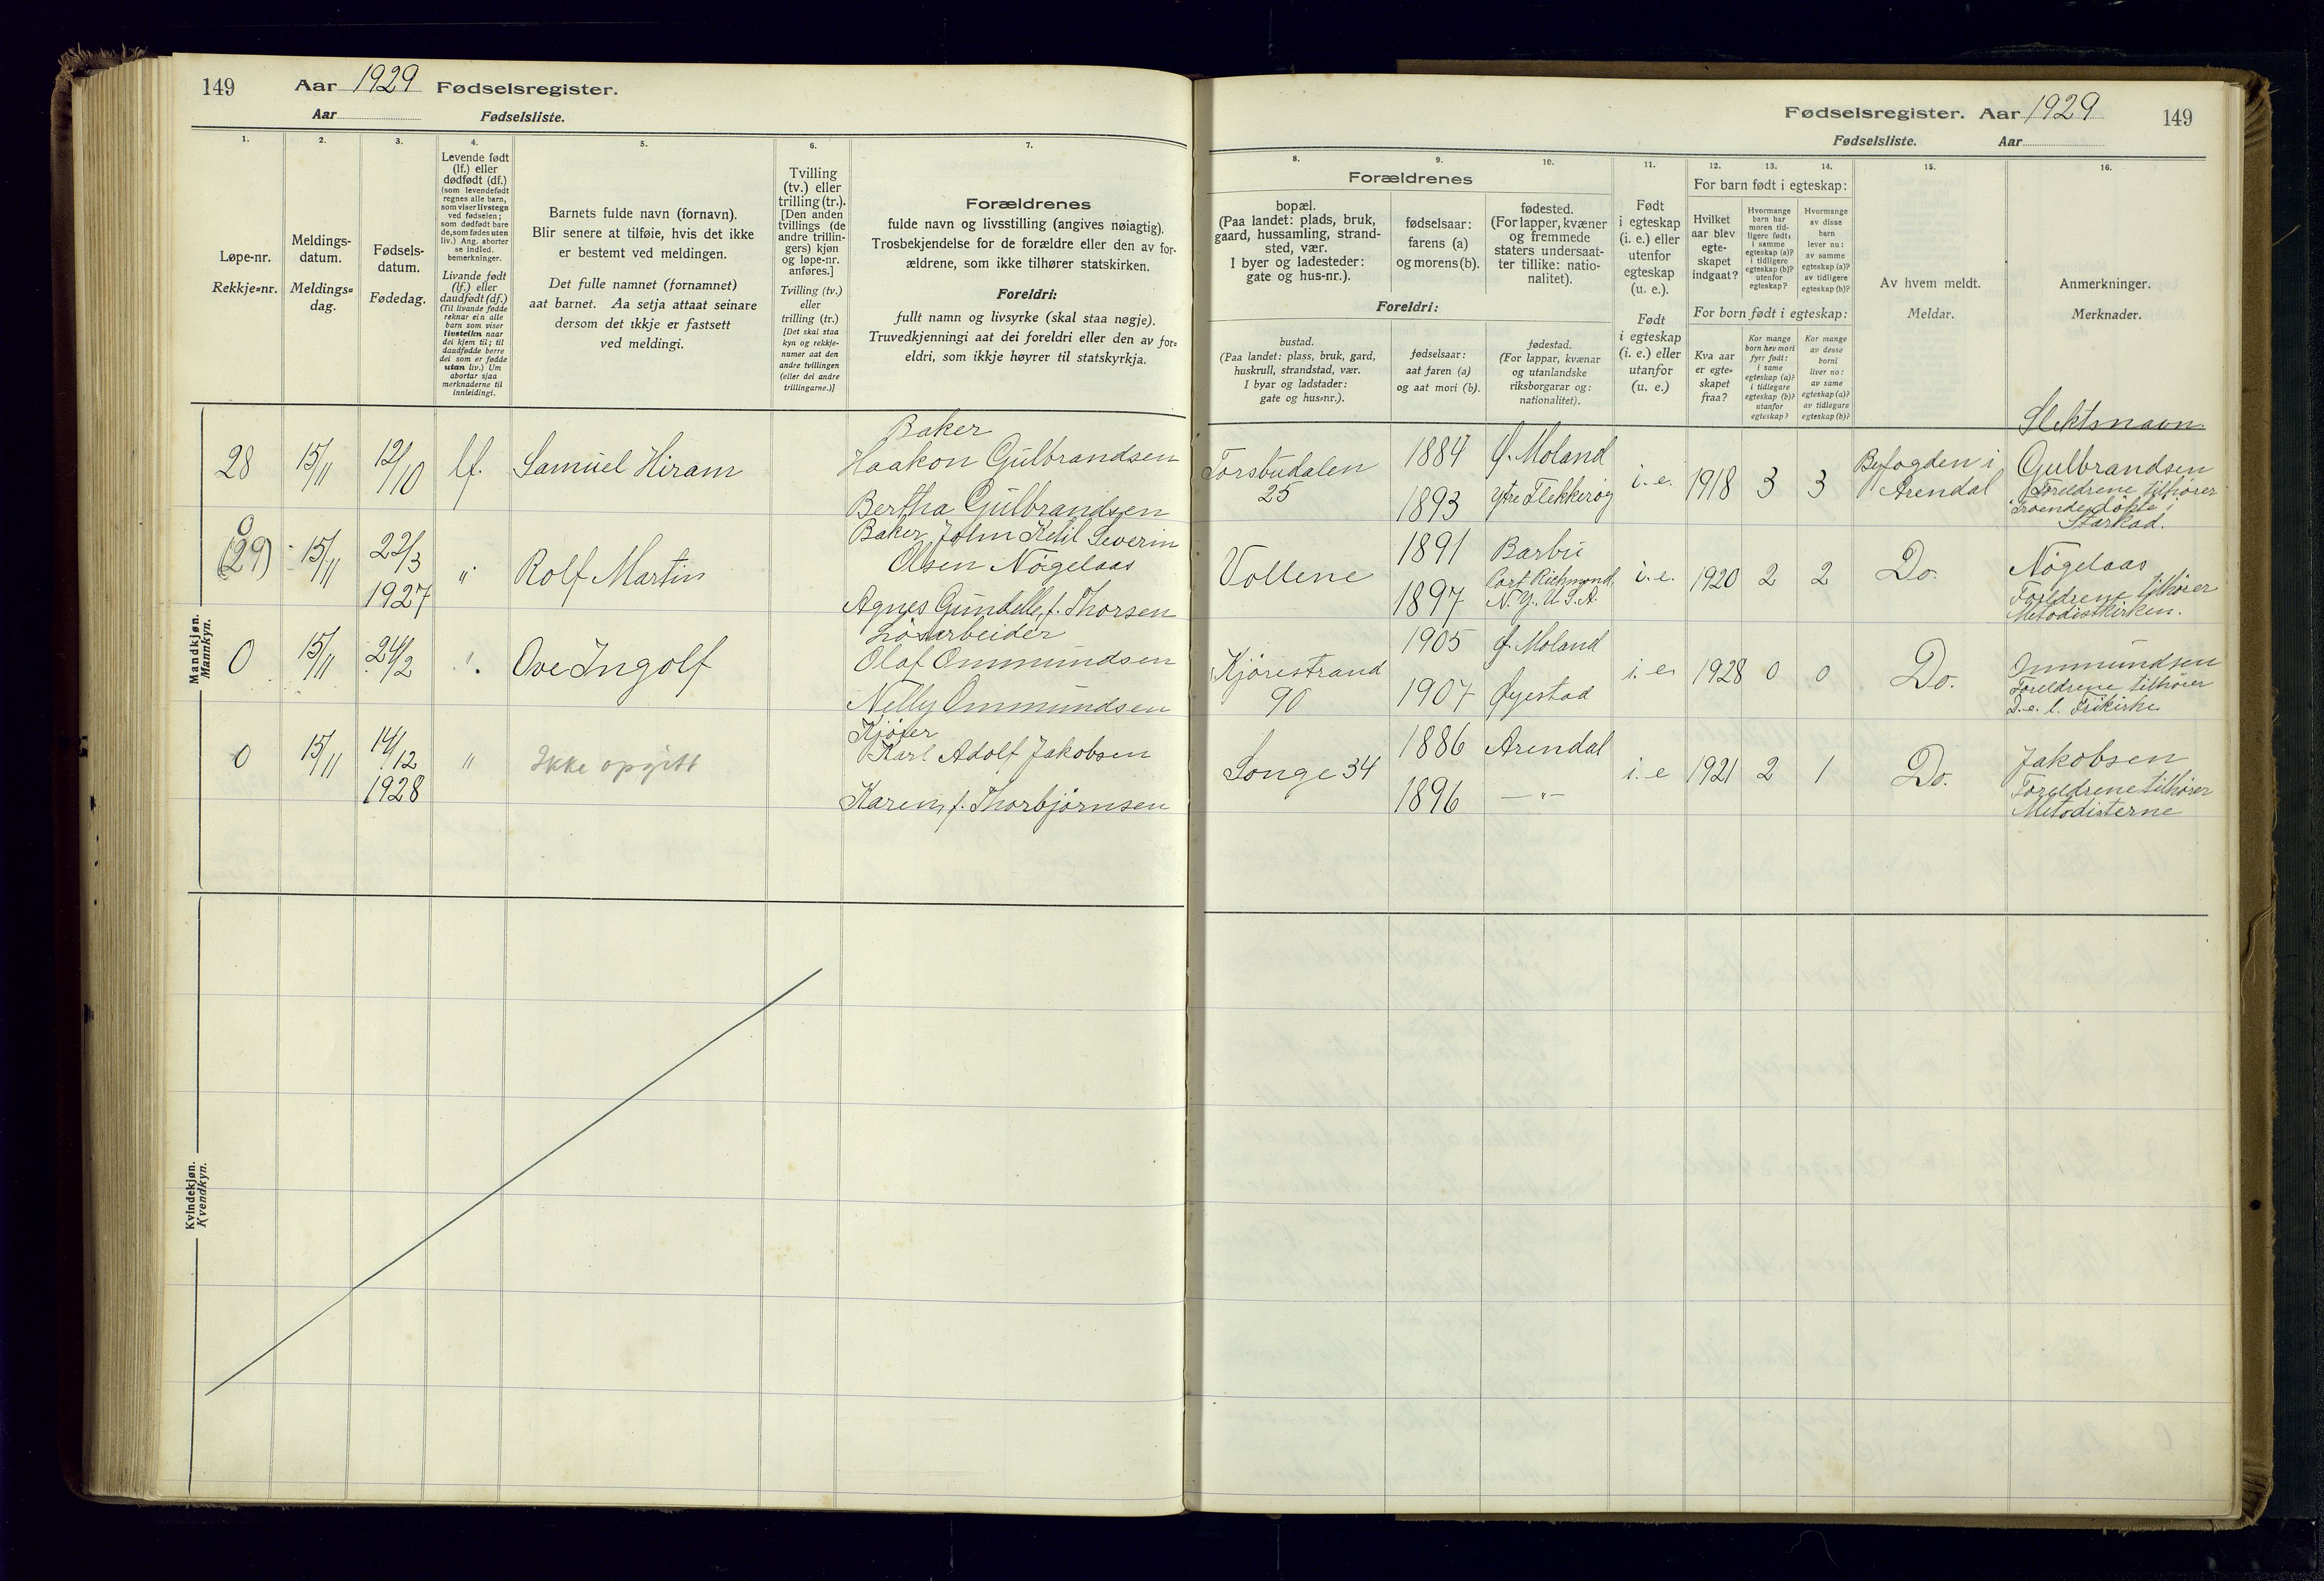 149 Aar 1929 Fødselsregister.
Aar Fødselsliste.
1. 2. 3. 4. 5. 6. 7.
Løpe-nr.
Rekkje=nr.
Meldings-
datum.
Meldings=
dag.
Fødsels-
datum.
Fødedag.
Levende født
(lf.) eller
dødfødt (df.)
(som levendefødt
regnes alle barn,
som viser livstegn
ved fødselen;
som dødfødt bare
de, som fødes uten
liv.) Ang. aborter
se indled.
bemerkninger.
Livande født
(lf.) eller
daudfødt (df.)
(Til livande fødde
reknar ein alle
barn som viser
livsteikn naar
dei kjem til; til
daudfødde berre
dei som er fødde
utan liv.) Um
abortar sjaa
merknaderne til
innleidingi.
Barnets fulde navn (fornavn).
Blir senere at tilføie, hvis det ikke
er bestemt ved meldingen.
Det fulle namnet (fornamnet)
aat barnet. Aa setja attaat seinare
dersom det ikkje er fastsett
ved meldingi.
Tvilling
(tv.) eller
trilling (tr.).
[Den anden
tvillings (de
andre trillin-
gers) kjøn
og løpe-nr.
anføres.]
Tvilling (tv.)
eller
trilling (tr.)
[Det skal staa
kyn og rekkje-
numer aat den
andre tvillingen
(eller dei andre
trillingarne.)]
Forældrenes
fulde navn og livsstilling (angives nøiagtig).
Trosbekjendelse for de forældre eller den av for-
ældrene, som ikke tilhører statskirken.
Foreldri:
fullt namn og livsyrke (skal staa nøgje).
Truvedkjenningi aat dei foreldri eller den av for=
eldri, som ikkje høyrer til statskyrkja.
Mandkjøn.
Mannkyn.
28 15/11 12/10 lf. Samuel Hiram
Baker
Haakon Gulbrandsen
Bertha Gulbrandsen
0
(29) 15/11 22/3
1927
" Rolf Martin
Baker John Ketil Severin
Olsen Nøgelaas
Agnes Gunbelle, f. Thorsen
0 15/11 24/2 " Ove Ingolf
Løsarbeider
Olaf Ommundsen
Nelly Ommundsen
0 15/11 14/12
1928
" Ikke opgitt
Kjører
Karl Adolf Jakobsen
Karen, f. Thorbjørnsen
Kvindekjøn.
Kvendkyn.
Fødselsregister. Aar 1929 149
Fødselsliste. Aar
8. 9. 10. 11. 12. 13. 14. 15. 16.
Forældrenes
bopæl.
(Paa landet: plads, bruk,
gaard, hussamling, strand-
sted, vær.
I byer og ladesteder:
gate og hus-nr.).
fødselsaar:
farens (a)
og morens (b).
fødested.
(For lapper, kvæner
og fremmede
staters undersaat-
ter tillike: natio-
nalitet).
Foreldri:
bustad.
(Paa landet: plass, bruk, gard,
huskrull, strandstad, vær.
I byar og ladstader:
gate og hus=nr.).
fødselsaar:
aat faren (a)
og aat mori (b).
fødestad.
(For lappar, kvænar
og utanlandske
riksborgarar og:
nationalitet).
Født
i egteskap
(i. e.) eller
utenfor
egteskap
(u. e.).
Født
i egteskap
(i. e.) eller
utanfor
(u. e.)
For barn født i egteskap:
Hvilket
aar blev
egte-
skapet
indgaat?
Hvormange
barn har
moren tid-
ligere født:
i samme
egteskap (a)?
i tidligere
egteskap (b)?
utenfor
egteskap?
Hvormange
av disse
barn
lever nu:
av samme
egteskap (a)?
av tidligere
egteskap (b)?
For born født i egteskap:
Kva aar
er egte=
skapet
fraa?
Kor mange
born hev mori
fyrr født:
i same
egteskap (a)?
i tidlegare
egteskap (b)?
utanfor
egteskap?
Kor mange
av desse
borni
liver no:
av same
egteskap (a)?
av tidlegare
egteskap (b)?
Av hvem meldt.
Meldar.
Anmerkninger.
Merknader.
Slektsnavn
Torsbudalen
25
1884 Ø. Moland
1893 Ytre Flekkerøy
i. e. 1918 3 3
Byfogden i
Arendal
Gulbrandsen
Foreldrene tilhører
Troende døpte i
Størkad.
Vollene
1891 Barbu
1897 Port Richmond,
N.Y., U.S.A.
i. e. 1920 2 2 Do.
Nøgelaas
Foreldrene tilhører
Metodistkirken.
Kjørestrand
90
1905 Ø. Moland
1907 Øyestad
i. e. 1928 0 0 Do.
Ommundsen
Foreldrene tilhører
D. e. l. Frikirke
Songe 34
1886 Arendal
1896 — " —
i. e 1921 2 1 Do.
Jakobsen
Foreldrene tilhører
Metodisterne